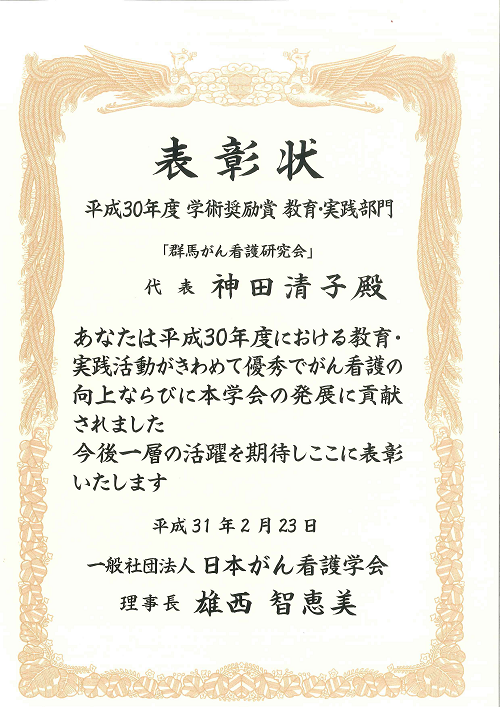 表彰状
平成30年度 学術奨励賞 教育・実践部門
「群馬がん看護研究会」
代表 神田清子殿
あなたは平成30年度における教育・
実践活動がきわめて優秀でがん看護の
向上ならびに本学会の発展に貢献
されました
今後一層の活躍を期待しここに表彰
いたします
平成31年2月23日
一般社団法人 日本がん看護学会
理事長 雄西 智恵美